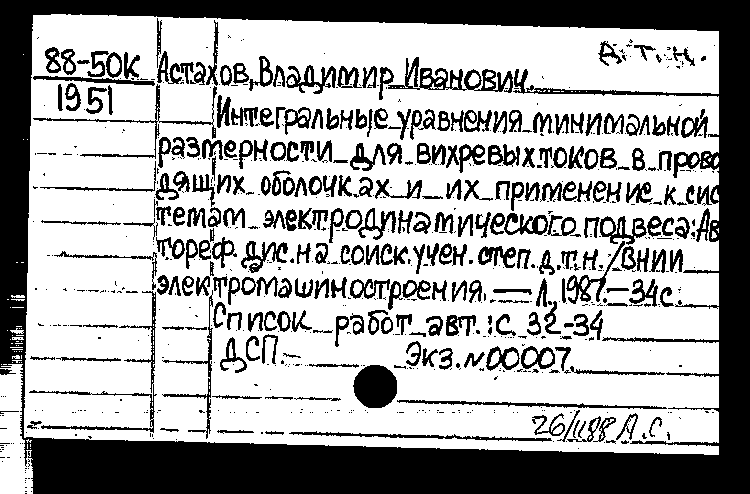 Д.Т.Н.
88-50К Астахов, Владимир Иванович.
1951 Интегральные уравнения минимальной
размерности для вихревых токов в прово
дящих оболочках и их применение к сис
темам электродинамического подвеса: Ав
тореф. дис. на соиск. учен. степ. д.т.н. /ВНИИ
электромашиностроения. — Л., 1987. — 34с.
Список работ авт.: с. 32-34
ДСП. — Экз. №00007.
А.С.